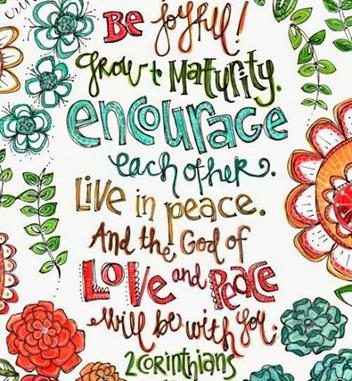 Be joyful!
grow to Maturity.
encourage
each other.
Live in peace.
And the God of
Love and Peace
will be with you.
2 Corinthians